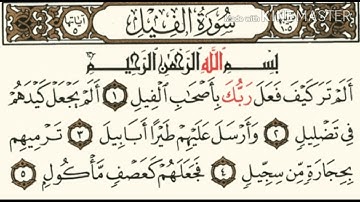 سُورَةُ الْفِيلِ
آيَاتُهَا ٥
١٠٥
Made with KINEMASTER
بِسْمِ اللَّهِ الرَّحْمَٰنِ الرَّحِيمِ
أَلَمْ تَرَ كَيْفَ فَعَلَ رَبُّكَ بِأَصْحَابِ الْفِيلِ ١ أَلَمْ يَجْعَلْ كَيْدَهُمْ
فِي تَضْلِيلٍ ٢ وَأَرْسَلَ عَلَيْهِمْ طَيْرًا أَبَابِيلَ ٣ تَرْمِيهِم
بِحِجَارَةٍ مِّن سِجِّيلٍ ٤ فَجَعَلَهُمْ كَعَصْفٍ مَّأْكُولٍ ٥